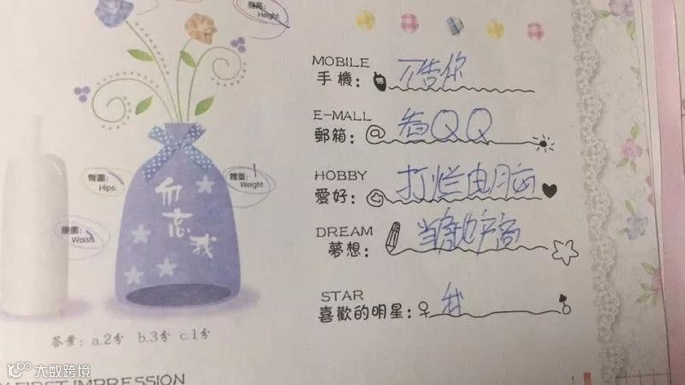 身高:
Height:
MOBILE
手機: 不告你
E-MALL
郵箱: @ 看QQ
臀圍:
Hips:
體重:
Weight
HOBBY
愛好: 打烂电脑
勿忘我
腰圍:
Waish
DREAM
夢想: 当房地产商
STAR
喜歡的明星: 我
答案: a.2分 b.3分 c.1分
FIRST IMPRESSION
大数跨境